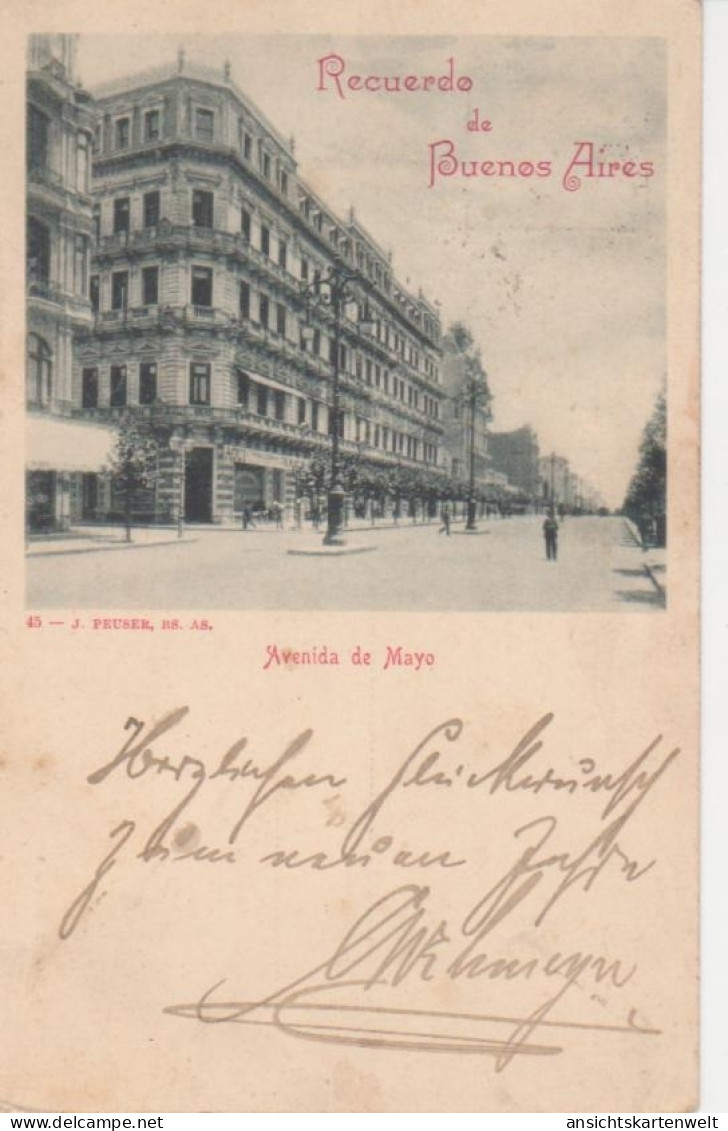 Recuerdo
de
Buenos Aires
45 — J. PEUSER, BS. AS.
Avenida de Mayo
Herzlichen Glückwunsch
zum neuen Jahre
ansichtskartenwelt